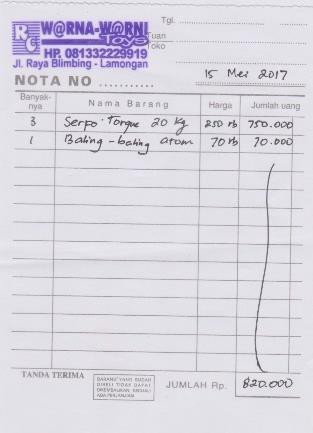 Tgl.
RC
W@RNA-W@RNI
Toys
Tuan
Toko
HP. 081332229919
Jl. Raya Blimbing - Lamongan
NOTA NO ...........
15 Mei 2017
Banyak-nya Nama Barang Harga Jumlah uang
3 Serfo Torque 20 Kg 250 rb 750.000
1 Baling - baling atom 70 rb 70.000
TANDA TERIMA
BARANG YANG SUDAH
DIBELI TIDAK DAPAT
DIKEMBALIKAN KECUALI
ADA PERJANJIAN
JUMLAH Rp. 820.000